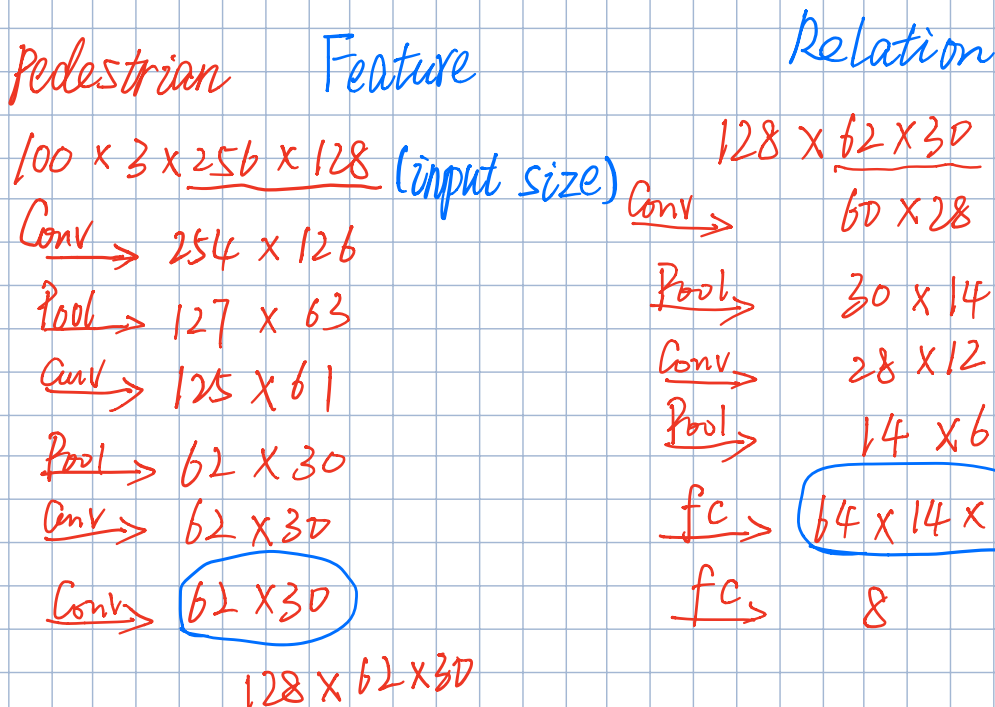 Pedestrian Feature
100 × 3 × 256 × 128 (input size)
Conv 254 × 126
Pool 127 × 63
Conv 125 × 61
Pool 62 × 30
Conv 62 × 30
Conv 62 × 30
128 × 62 × 30
Relation
128 × 62 × 30
Conv 60 × 28
Pool 30 × 14
Conv 28 × 12
Pool 14 × 6
fc 64 × 14 ×
fc 8